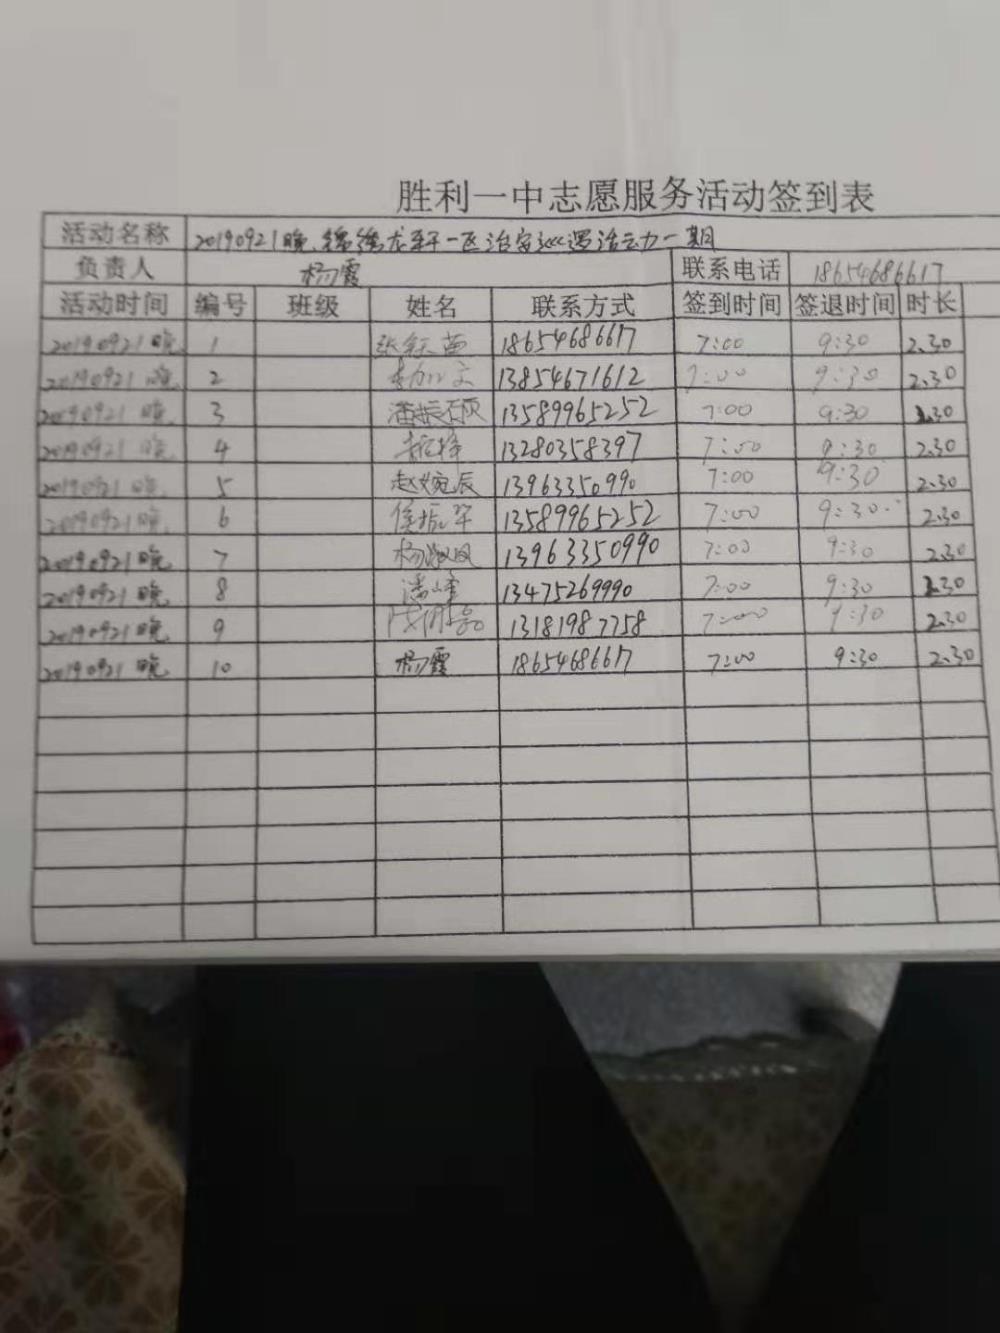 胜利一中志愿服务活动签到表
活动名称 20190921晚 龙轩一区治安巡逻活动一期
负责人 杨霞 联系电话 18654686617
活动时间 编号 班级 姓名 联系方式 签到时间 签退时间 时长
20190921晚 1 18654686617 7:00 9:30 2.30
20190921晚 2 13854671612 7:00 9:30 2.30
20190921晚 3 潘振硕 13589965252 7:00 9:30 2.30
20190921晚 4 13280358397 7:00 9:30 2.30
20190921晚 5 赵婉辰 13963350990 7:00 9:30 2.30
20190921晚 6 侯振华 13589965252 7:00 9:30 2.30
20190921晚 7 杨淑凤 13963350990 7:00 9:30 2.30
20190921晚 8 潘峰 13475269990 7:00 9:30 2.30
20190921晚 9 13181987758 7:00 9:30 2.30
20190921晚 10 杨霞 18654686617 7:00 9:30 2.30